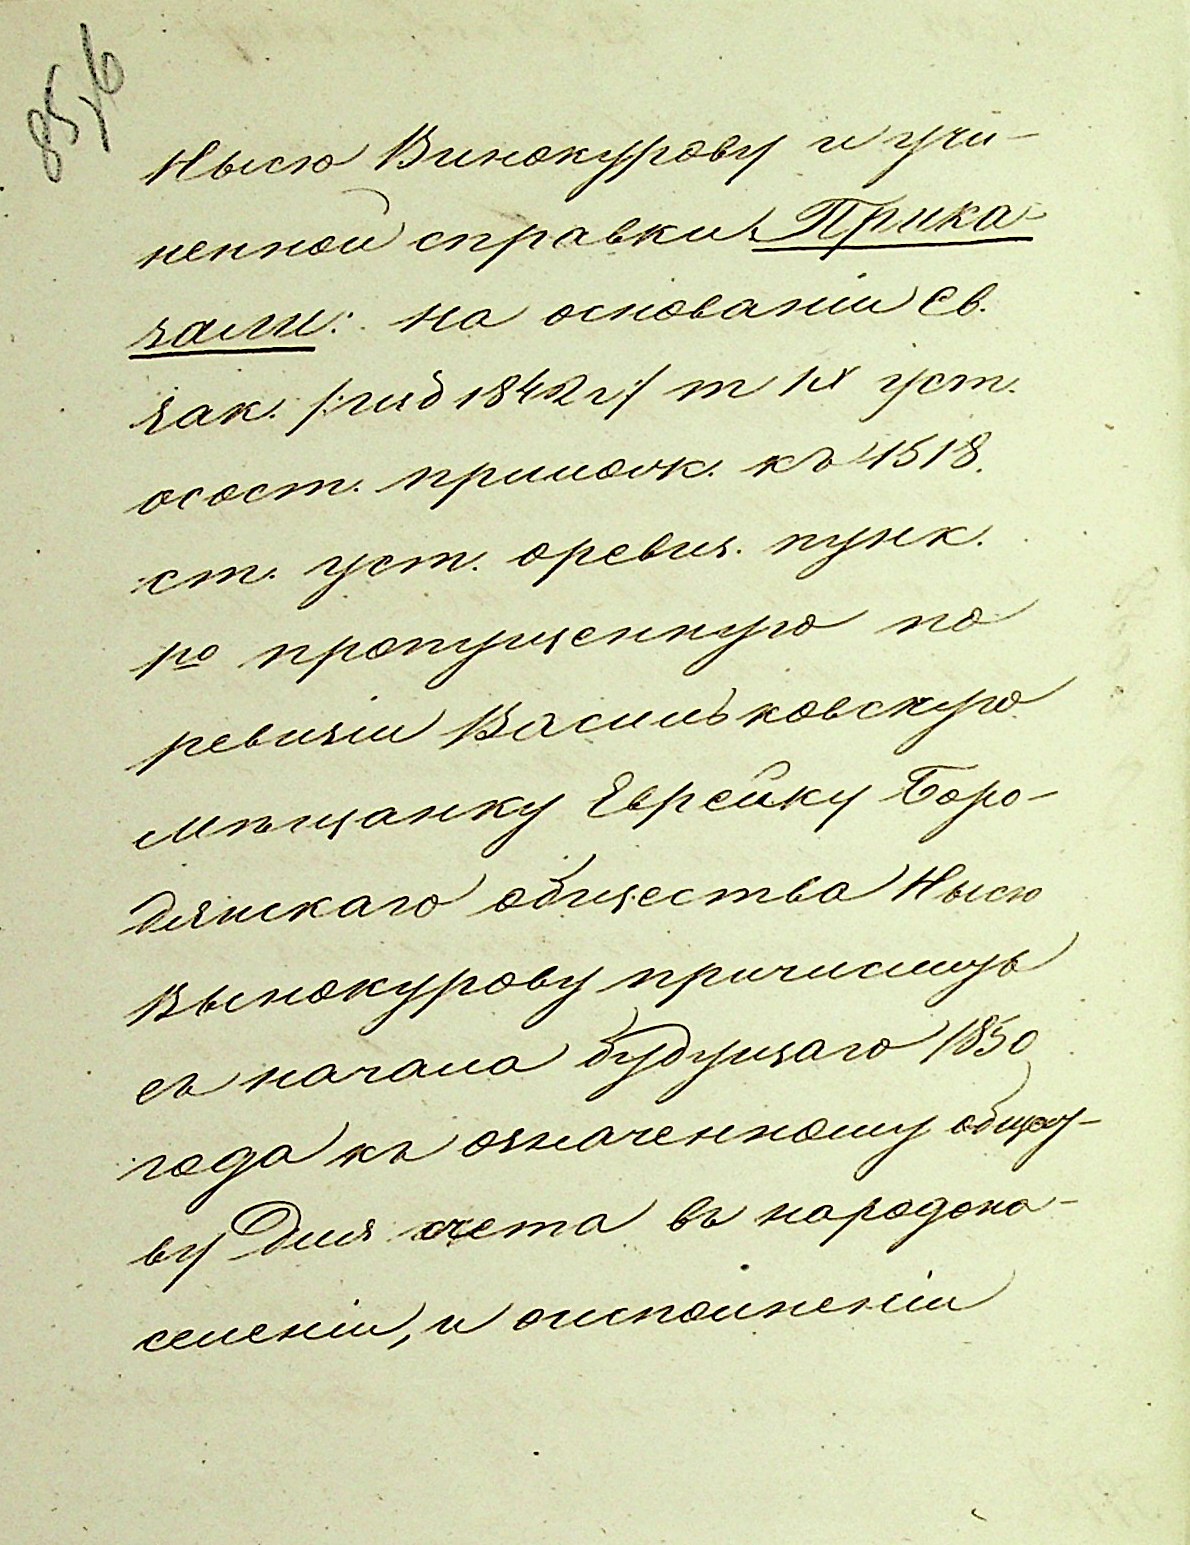 85,6
Нысю Винокурову и учи-
ненной справки Прика-
зали: на основаніи Св.
зак. /: изд 1842 г:/ т IX уст.
о сост. примѣч. къ 1518.
ст. уст. о ревиз. пунк.
1го пропущенную по
ревизіи Васильковскую
мѣщанку Еврейку Боро-
дянскаго общества Нысю
Вынокурову причислить
съ начала будущаго 1850
года къ означенному общест-
ву для счета въ народона-
селеніи, и о исполненіи